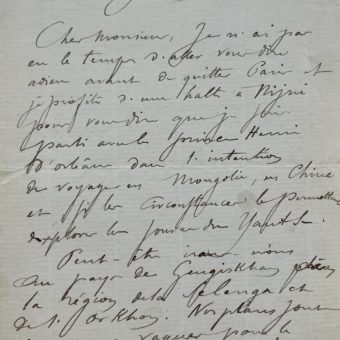 Cher Monsieur, Je n'ai pas
eu le temps d'aller vous dire
adieu avant de quitter Paris et
je profite d'une halte à Nijni
pour vous dire que je suis
parti avec le prince Henri
d'Orléans dans l'intention
de voyager en Mongolie, en Chine
et si les circonstances le permettent
d'explorer les sources du Yantsé.
Peut-être irons-nous
au pays de Gengiskhan
la région de la Selenga et
de l'Orkhon. Nos plans sont
pour le